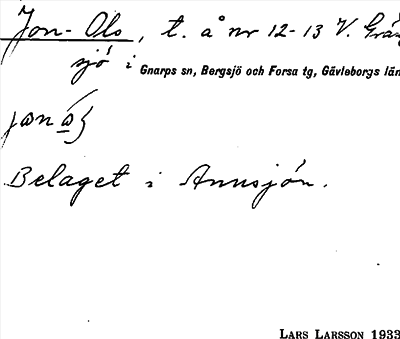 Jon-Ols, t. å nr 12-13 V. Grän
sjö i Gnarps sn, Bergsjö och Forsa tg, Gävleborgs län
Belaget i Annsjön.
LARS LARSSON 1933